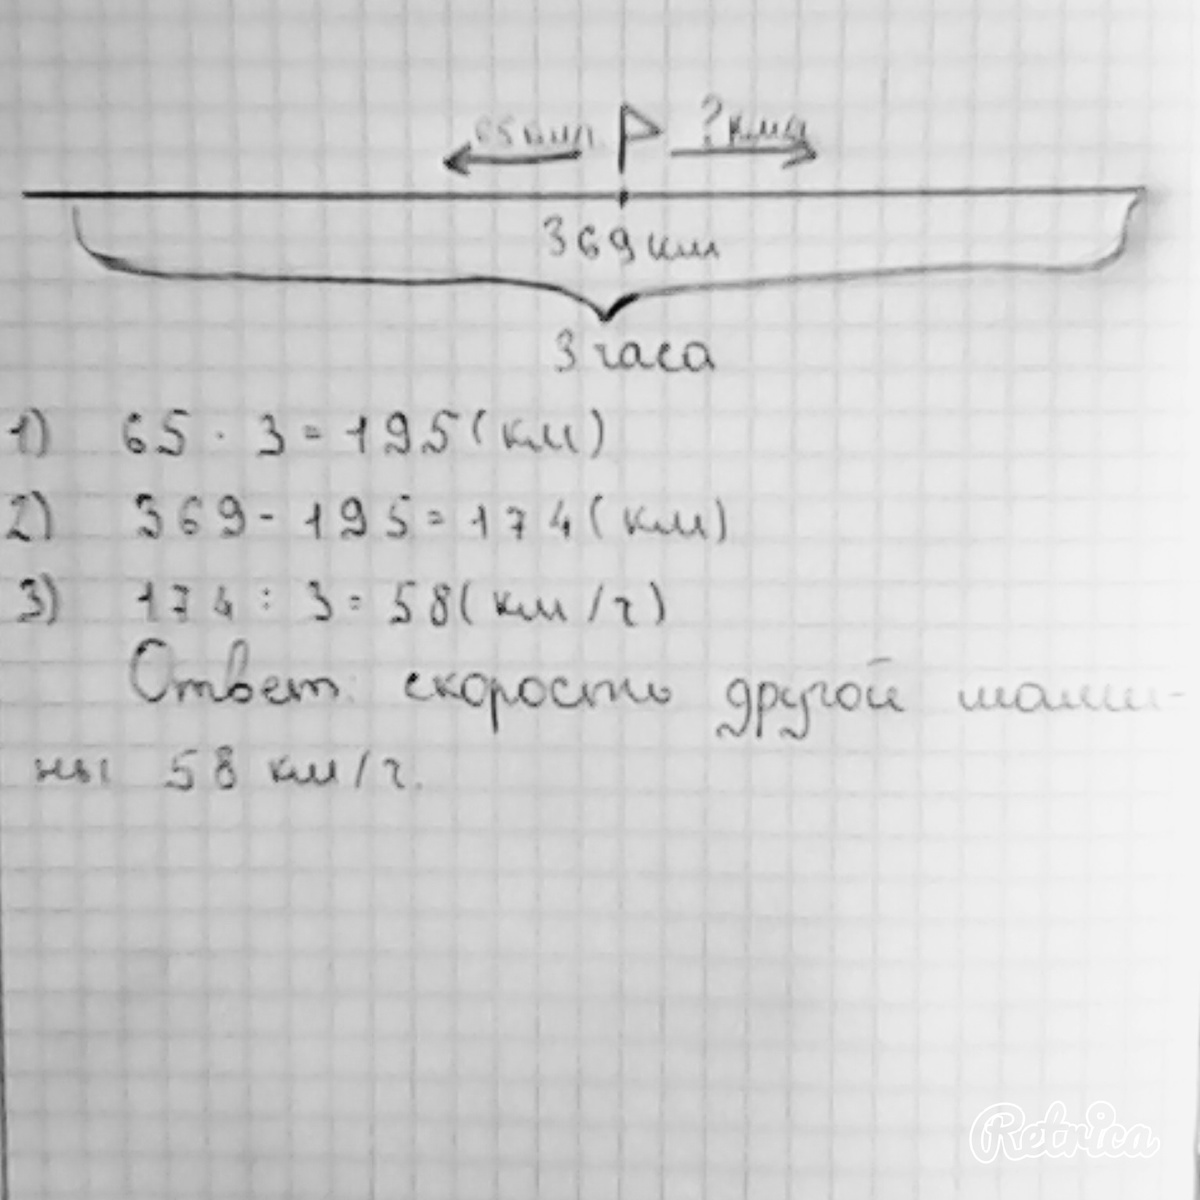 65 км/ч ? км/ч
369 км
3 часа
1) 65 · 3 = 195 (км)
2) 369 - 195 = 174 (км)
3) 174 : 3 = 58 (км/ч)
Ответ: скорость другой маши-
ны 58 км/ч.
Retrica